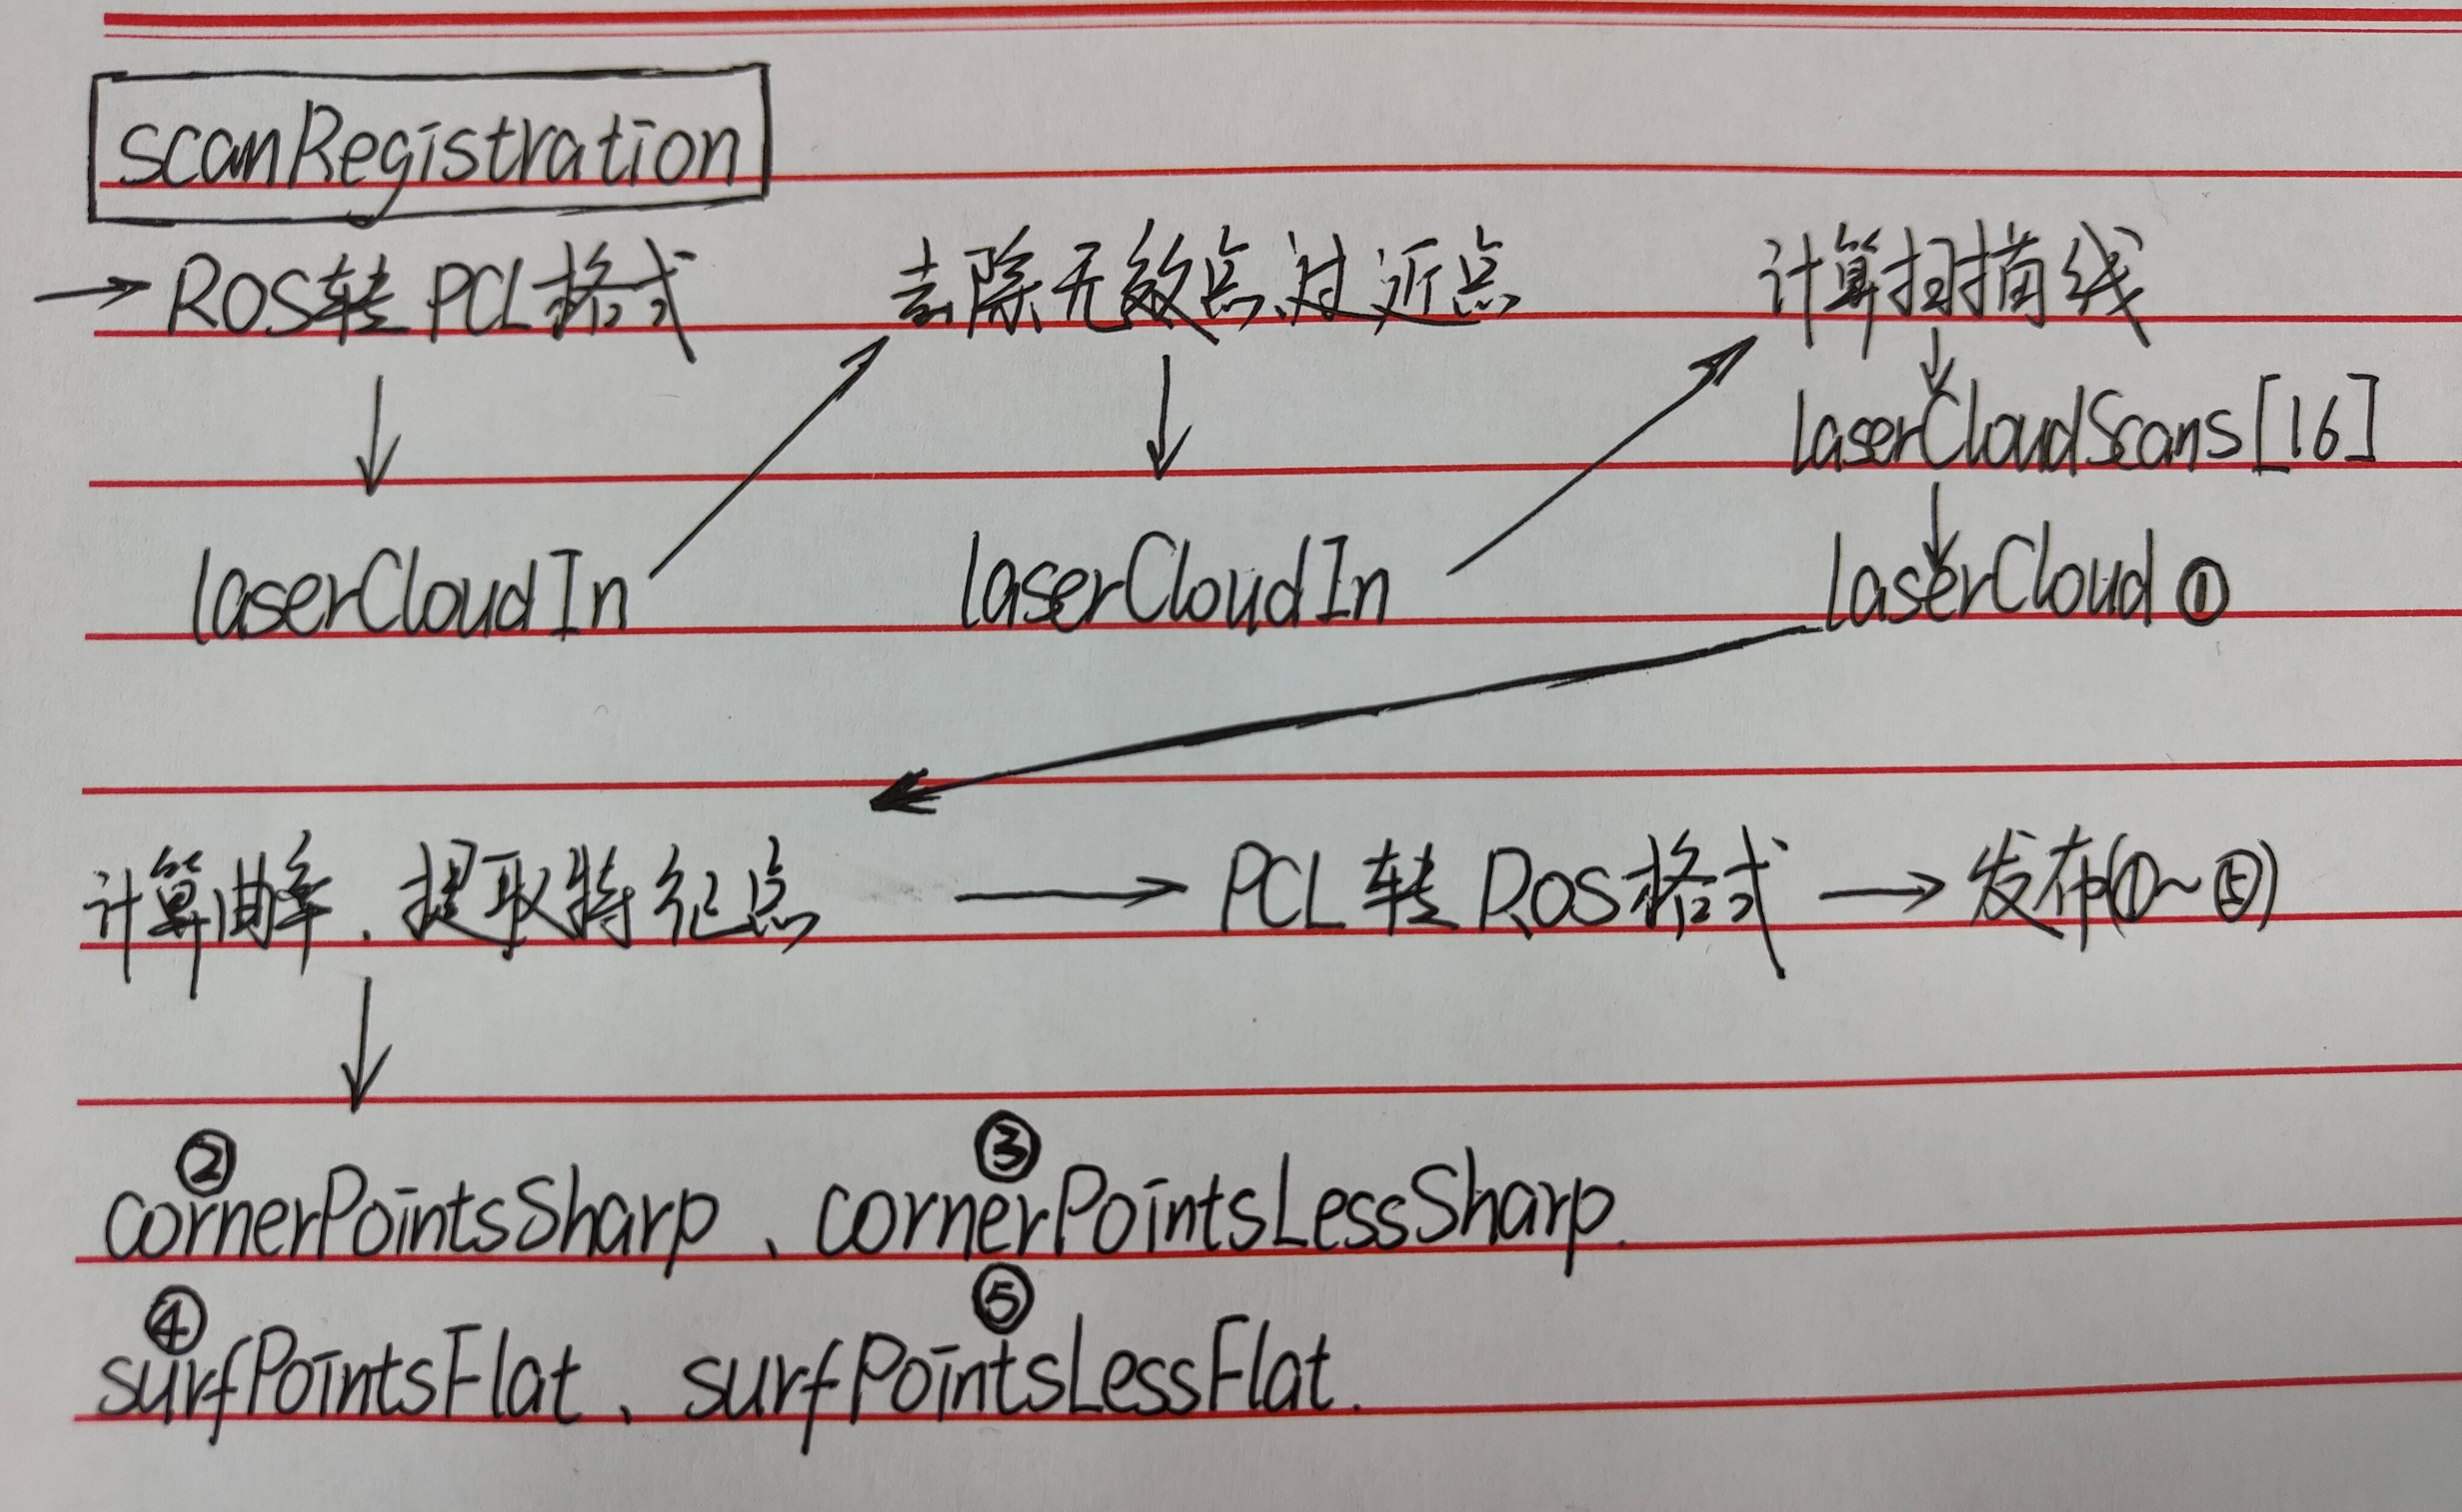 scanRegistration
→ROS转PCL格式 去除无效点、过近点 计算扫描线
laserCloudScans[16]
laserCloudIn laserCloudIn laserCloud ①
计算曲率、提取特征点 → PCL转ROS格式 → 发布(①~⑤)
② ③
cornerPointsSharp、cornerPointsLessSharp.
④ ⑤
surfPointsFlat、surfPointsLessFlat.